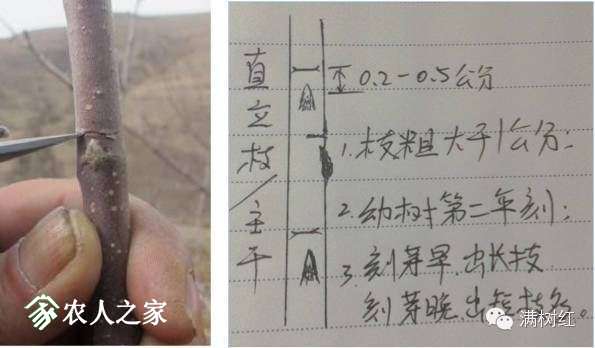 农人之家
直立枝/主干
0.2-0.5公分
1.枝粗大于1公分;
2.幼树第二年刻;
3.刻芽早.出长枝
刻芽晚.出短枝
满树红